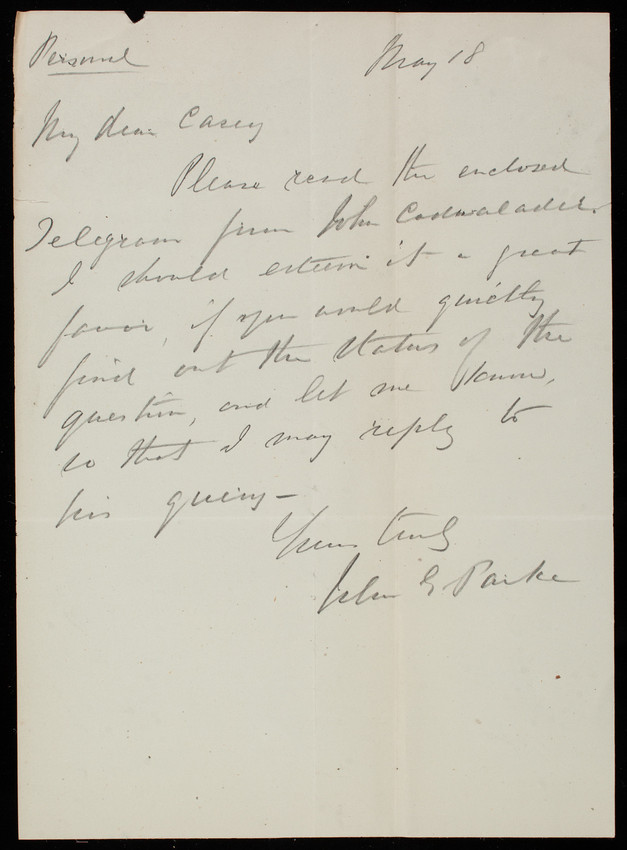 Personal
May 18
My dear Casey
Please read the enclosed
Telegram from John Cadwalader.
I should esteem it a great
favor, if you would quietly
find out the status of the
question, and let me know,
so that I may reply to
his query—
Yours truly
John G Parke